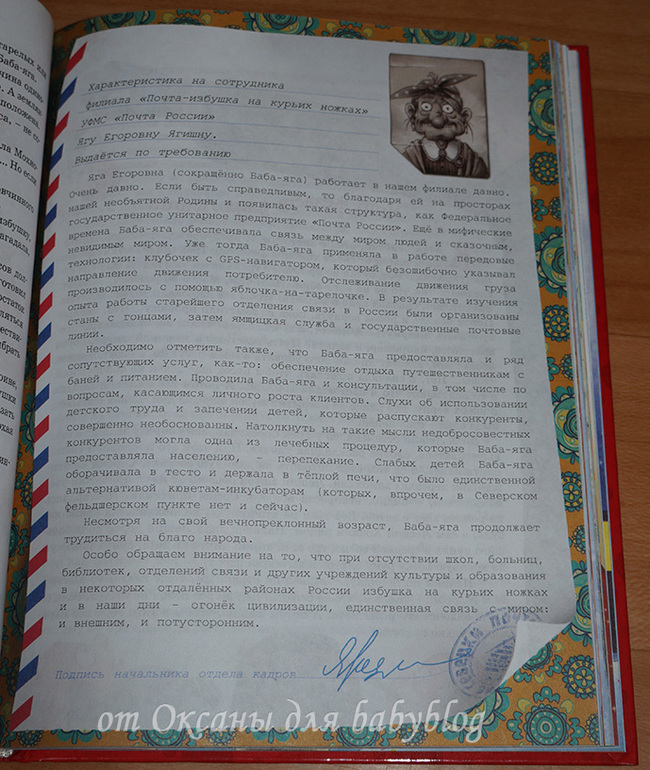 тарелых или
Баба-яга.
чина одино-
е. А землян
положена.
са, – не со-
ла Мохно-
... Но если
овчинного
избушку,
агадала,
сов дол-
готовил
остаток
ляться
естви-
ыбрать
ушки
зать
охая
Характеристика на сотрудника
филиала «Почта-избушка на курьих ножках»
УФМС «Почта России»
Ягу Егоровну Ягишну.
Выдаётся по требованию
Яга Егоровна (сокращённо Баба-яга) работает в нашем филиале давно.
Очень давно. Если быть справедливым, то благодаря ей на просторах
нашей необъятной Родины и появилась такая структура, как Федеральное
государственное унитарное предприятие «Почта России». Ещё в мифические
времена Баба-яга обеспечивала связь между миром людей и сказочным,
невидимым миром. Уже тогда Баба-яга применяла в работе передовые
технологии: клубочек с GPS-навигатором, который безошибочно указывал
направление движения потребителю. Отслеживание движения груза
производилось с помощью яблочка-на-тарелочке. В результате изучения
опыта работы старейшего отделения связи в России были организованы
станы с гонцами, затем ямщицкая служба и государственные почтовые
линии.
Необходимо отметить также, что Баба-яга предоставляла и ряд
сопутствующих услуг, как-то: обеспечение отдыха путешественникам с
баней и питанием. Проводила Баба-яга и консультации, в том числе по
вопросам, касающимся личного роста клиентов. Слухи об использовании
детского труда и запечении детей, которые распускают конкуренты,
совершенно необоснованны. Натолкнуть на такие мысли недобросовестных
конкурентов могла одна из лечебных процедур, которые Баба-яга
предоставляла населению, – перепекание. Слабых детей Баба-яга
оборачивала в тесто и держала в тёплой печи, что было единственной
альтернативой кюветам-инкубаторам (которых, впрочем, в Северском
фельдшерском пункте нет и сейчас).
Несмотря на свой вечнопреклонный возраст, Баба-яга продолжает
трудиться на благо народа.
Особо обращаем внимание на то, что при отсутствии школ, больниц,
библиотек, отделений связи и других учреждений культуры и образования
в некоторых отдалённых районах России избушка на курьих ножках
и в наши дни – огонёк цивилизации, единственная связь с миром:
и внешним, и потусторонним.
Подпись начальника отдела кадров
от Оксаны для babyblog